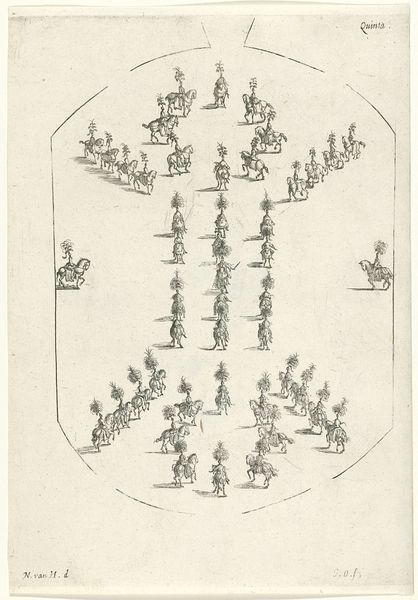 Quinta.
N. van H. d